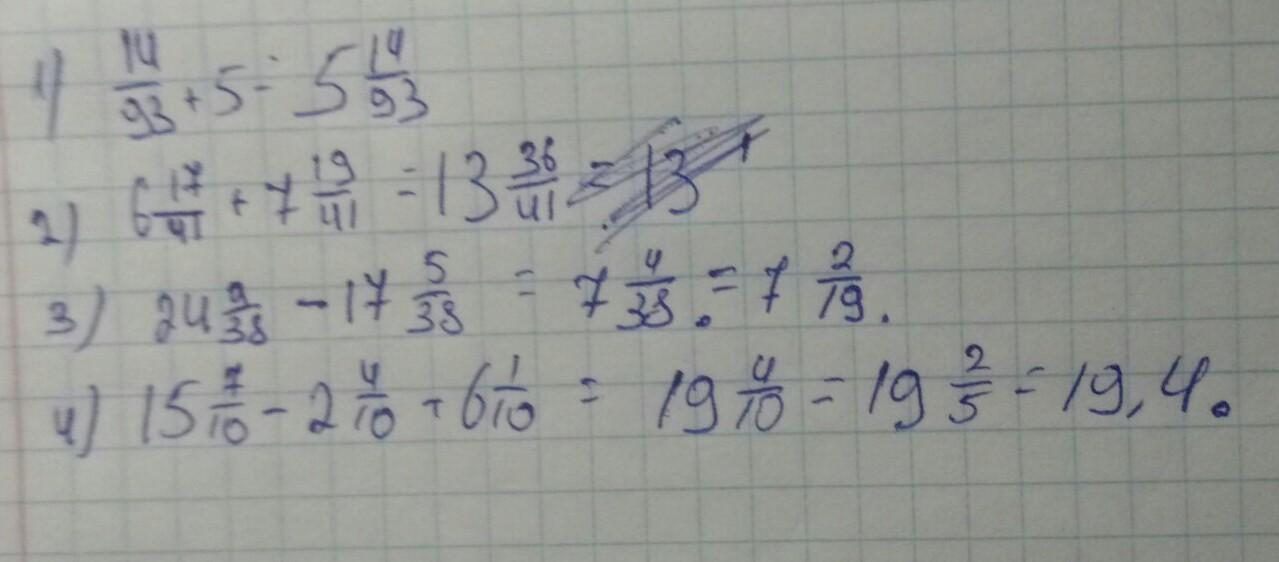 1) 14/93 + 5 = 5 14/93
2) 6 17/41 + 7 19/41 = 13 36/41 = 13
3) 24 9/38 - 17 5/38 = 7 4/38. = 7 2/19.
4) 15 7/10 - 2 4/10 + 6 1/10 = 19 4/10 = 19 2/5 = 19,4.